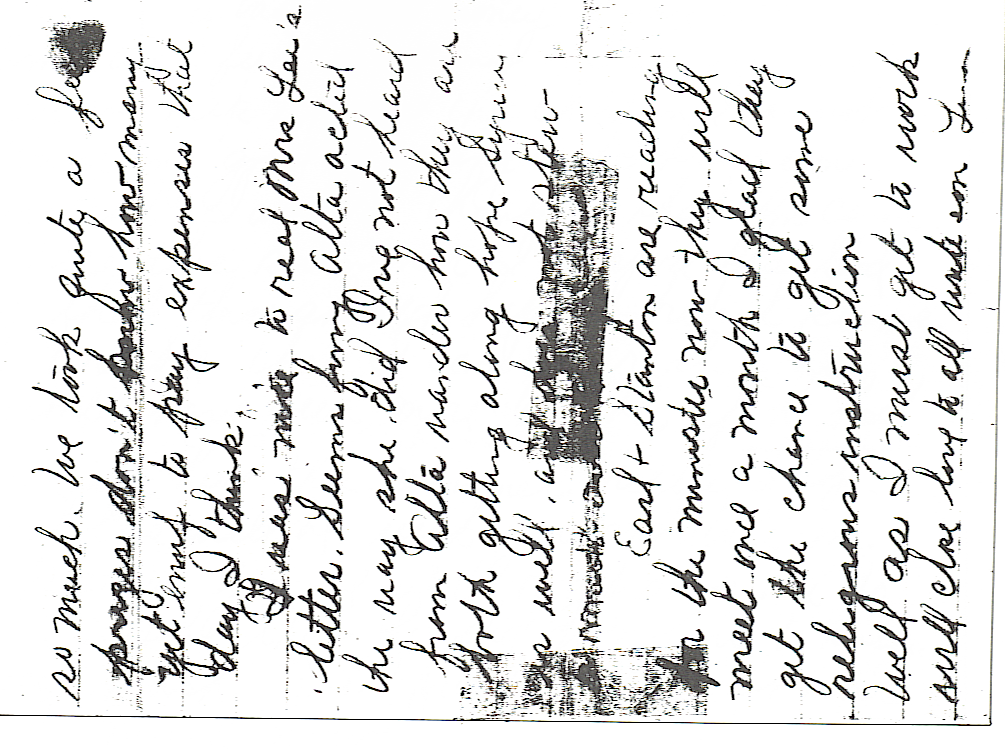 so much. We took quite a few
prizes don't know how many
yet but to pay expenses that
day I think.
It was nice to read Mrs Lee's
letter. Seems funny Alta acted
the way she did I've not heard
from Alta wonder how they are
both getting along hope
is well.
East + Stanton are reaching
for the minister now they will
meet once a month I glad they
get the chance to get some
religious instruction
Well as I must get to work
will close love to all write soon